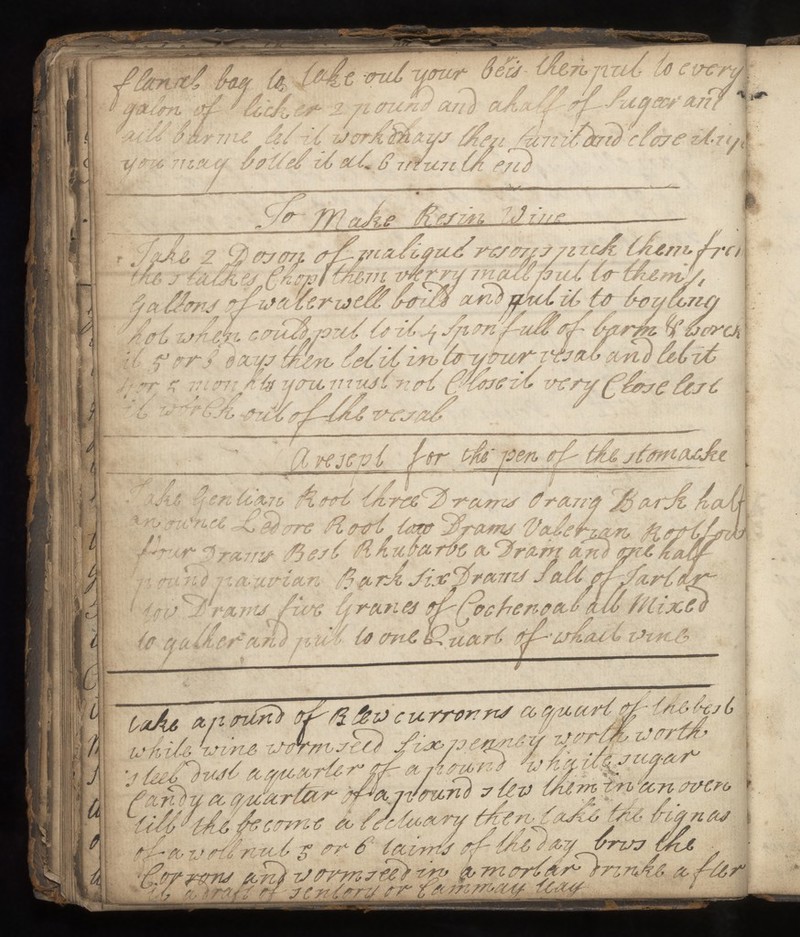 flanel bag to take out your beis then put to every
galon of licker 2 pound and a half of sugear and
gill barme let it work days then tun it and close it up
you may bottel it at 6 munth end
To Make Resin Wine
Take 2 Doson of malique resons pick them from
the stalkes Chop them verry mall put to them 5
Gallons of water well boild and put it to boyling
hot when could put to it 4 sponfull of barm & worck
it 5 or 6 days then let it into your vesal and let it
4 or 5 months you must not Close it very Close lest
it worck out of the vesal
A resept for the pen of the stomacke
Take Gentian Root three Drams Orang Bark half
an ounce Ledore Root tow Drams Valerian Root
four Drams Best Rhubarbe a Dram and one half
pound pauvian Bark Six Drams Salt of Tartar
tow Drams five Granes of Cochenoal all Mixed
to gather and put to one Quart of whait wine
take a pound of Blew curronns a quart of the best
while wine wormseed six penney worth worth
steel dust a quarter of a pound whaite sugar
Candy a quartar of a pound stew them in an oven
till the become a lectuary then take the bignas
of a wollnut 5 or 6 taims of the day brus the
Corrons and wormseed in a mortar drinke after
it a draft of sentory or Cammay teay